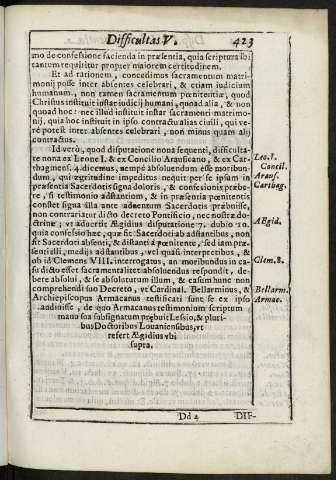 Difficultas V. 423
mo de confessione facienda in præsentia, quia scriptura ibi
tantum requiritur propter maiorem certitudinem.
Et ad rationem, concedimus sacramentum matri-
monij posse inter absentes celebrari, & etiam iudicium
humanum, non tamen sacramentum pœnitentiæ, quod
Christus instituit instar iudicij humani, quoad alia, & non
quoad hoc: nec illud instituit instar sacramenti matrimo-
nij, quia hoc instituit in ipso contractu alias civili, qui ve-
rè potest inter absentes celebrari, non minus quam alij
contractus.
Id verò, quod disputatione nona sequenti, difficulta-
te nona ex Leone I. & ex Concilio Arausicano, & ex Car-
thaginens. 4 dicemus, nempè absolvendum esse moribun-
dum, qui ægritudine impeditus nequit per se ipsum in
præsentia Sacerdotis signa doloris, & confessionis præbe-
re, si testimonio adstantium, & in præsentia pœnitentis
constet signa illa ante adventum Sacerdotis præbuisse,
non contrariatur dicto decreto Pontificio, nec nostræ do-
ctrinæ, vt advertit Ægidius disputatione 7. dubio 10.
quia confessio hæc, quæ fit Sacerdoti ab adstantibus, non
fit Sacerdoti absenti, & distanti à pœnitente, sed iam præ-
senti illi, medijs adstantibus, vel quasi interpretibus, &
ob id Clemens VIII. interrogatus, an moribundus in ca-
su dicto esset sacramentaliter absolvendus respondit, de-
bere absolvi, & se absoluturum illum, & easum hunc non
comprehendi suo Decreto, vt Cardinal. Bellarminus, &
Archiepiscopus Armacanus testificati sunt se ex ipso
audivisse, de quo Armacanus testimonium scriptum
manu sua subsignatum præbuit Lessio, & pluri-
bus Doctoribus Louaniensibus, vt
refert Ægidius vbi
supra.
Leo. I.
Concil.
Araus.
Carthag.
AEgid.
Clem. 8.
Bellarm.
Armac.
Dd 4 DIF-